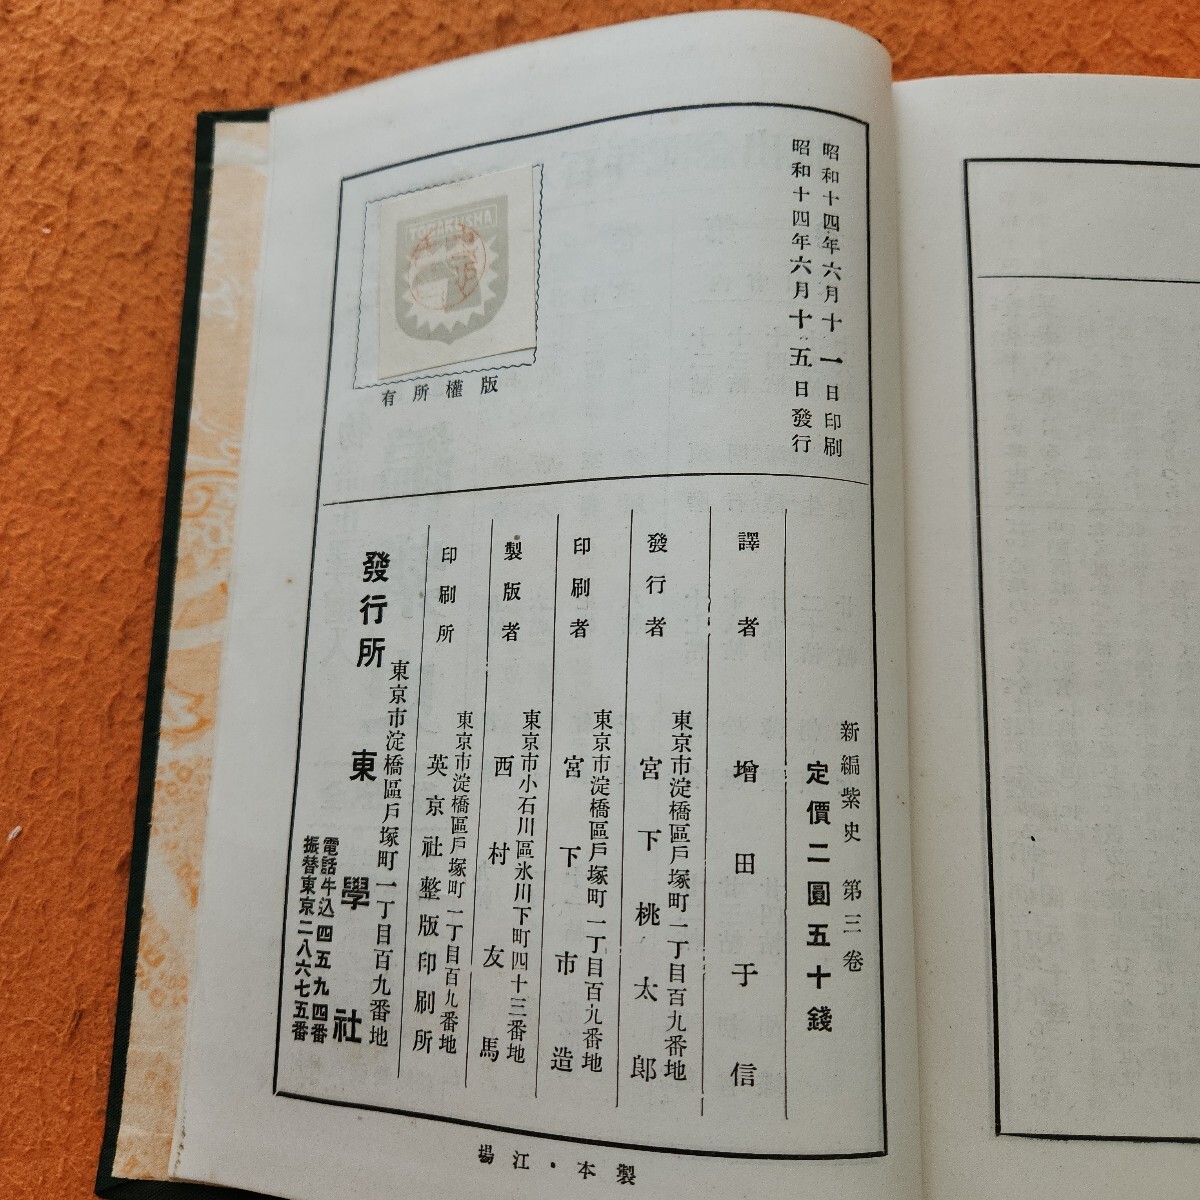 昭和十四年六月十一日印刷
昭和十四年六月十五日發行
TOGAKUSHA
有所權版
新編紫史 第三卷
定價二圓五十錢
譯者 增田于信
發行者 東京市淀橋區戶塚町一丁目百九番地
宮下桃太郎
印刷者 東京市淀橋區戶塚町一丁目百九番地
宮下市造
製版者 東京市小石川區氷川下町四十三番地
西村友馬
印刷所 東京市淀橋區戶塚町一丁目百九番地
英京社整版印刷所
東京市淀橋區戶塚町一丁目百九番地
發行所 東學社
電話牛込四五九四番
振替東京二八六七五番
場江・本製